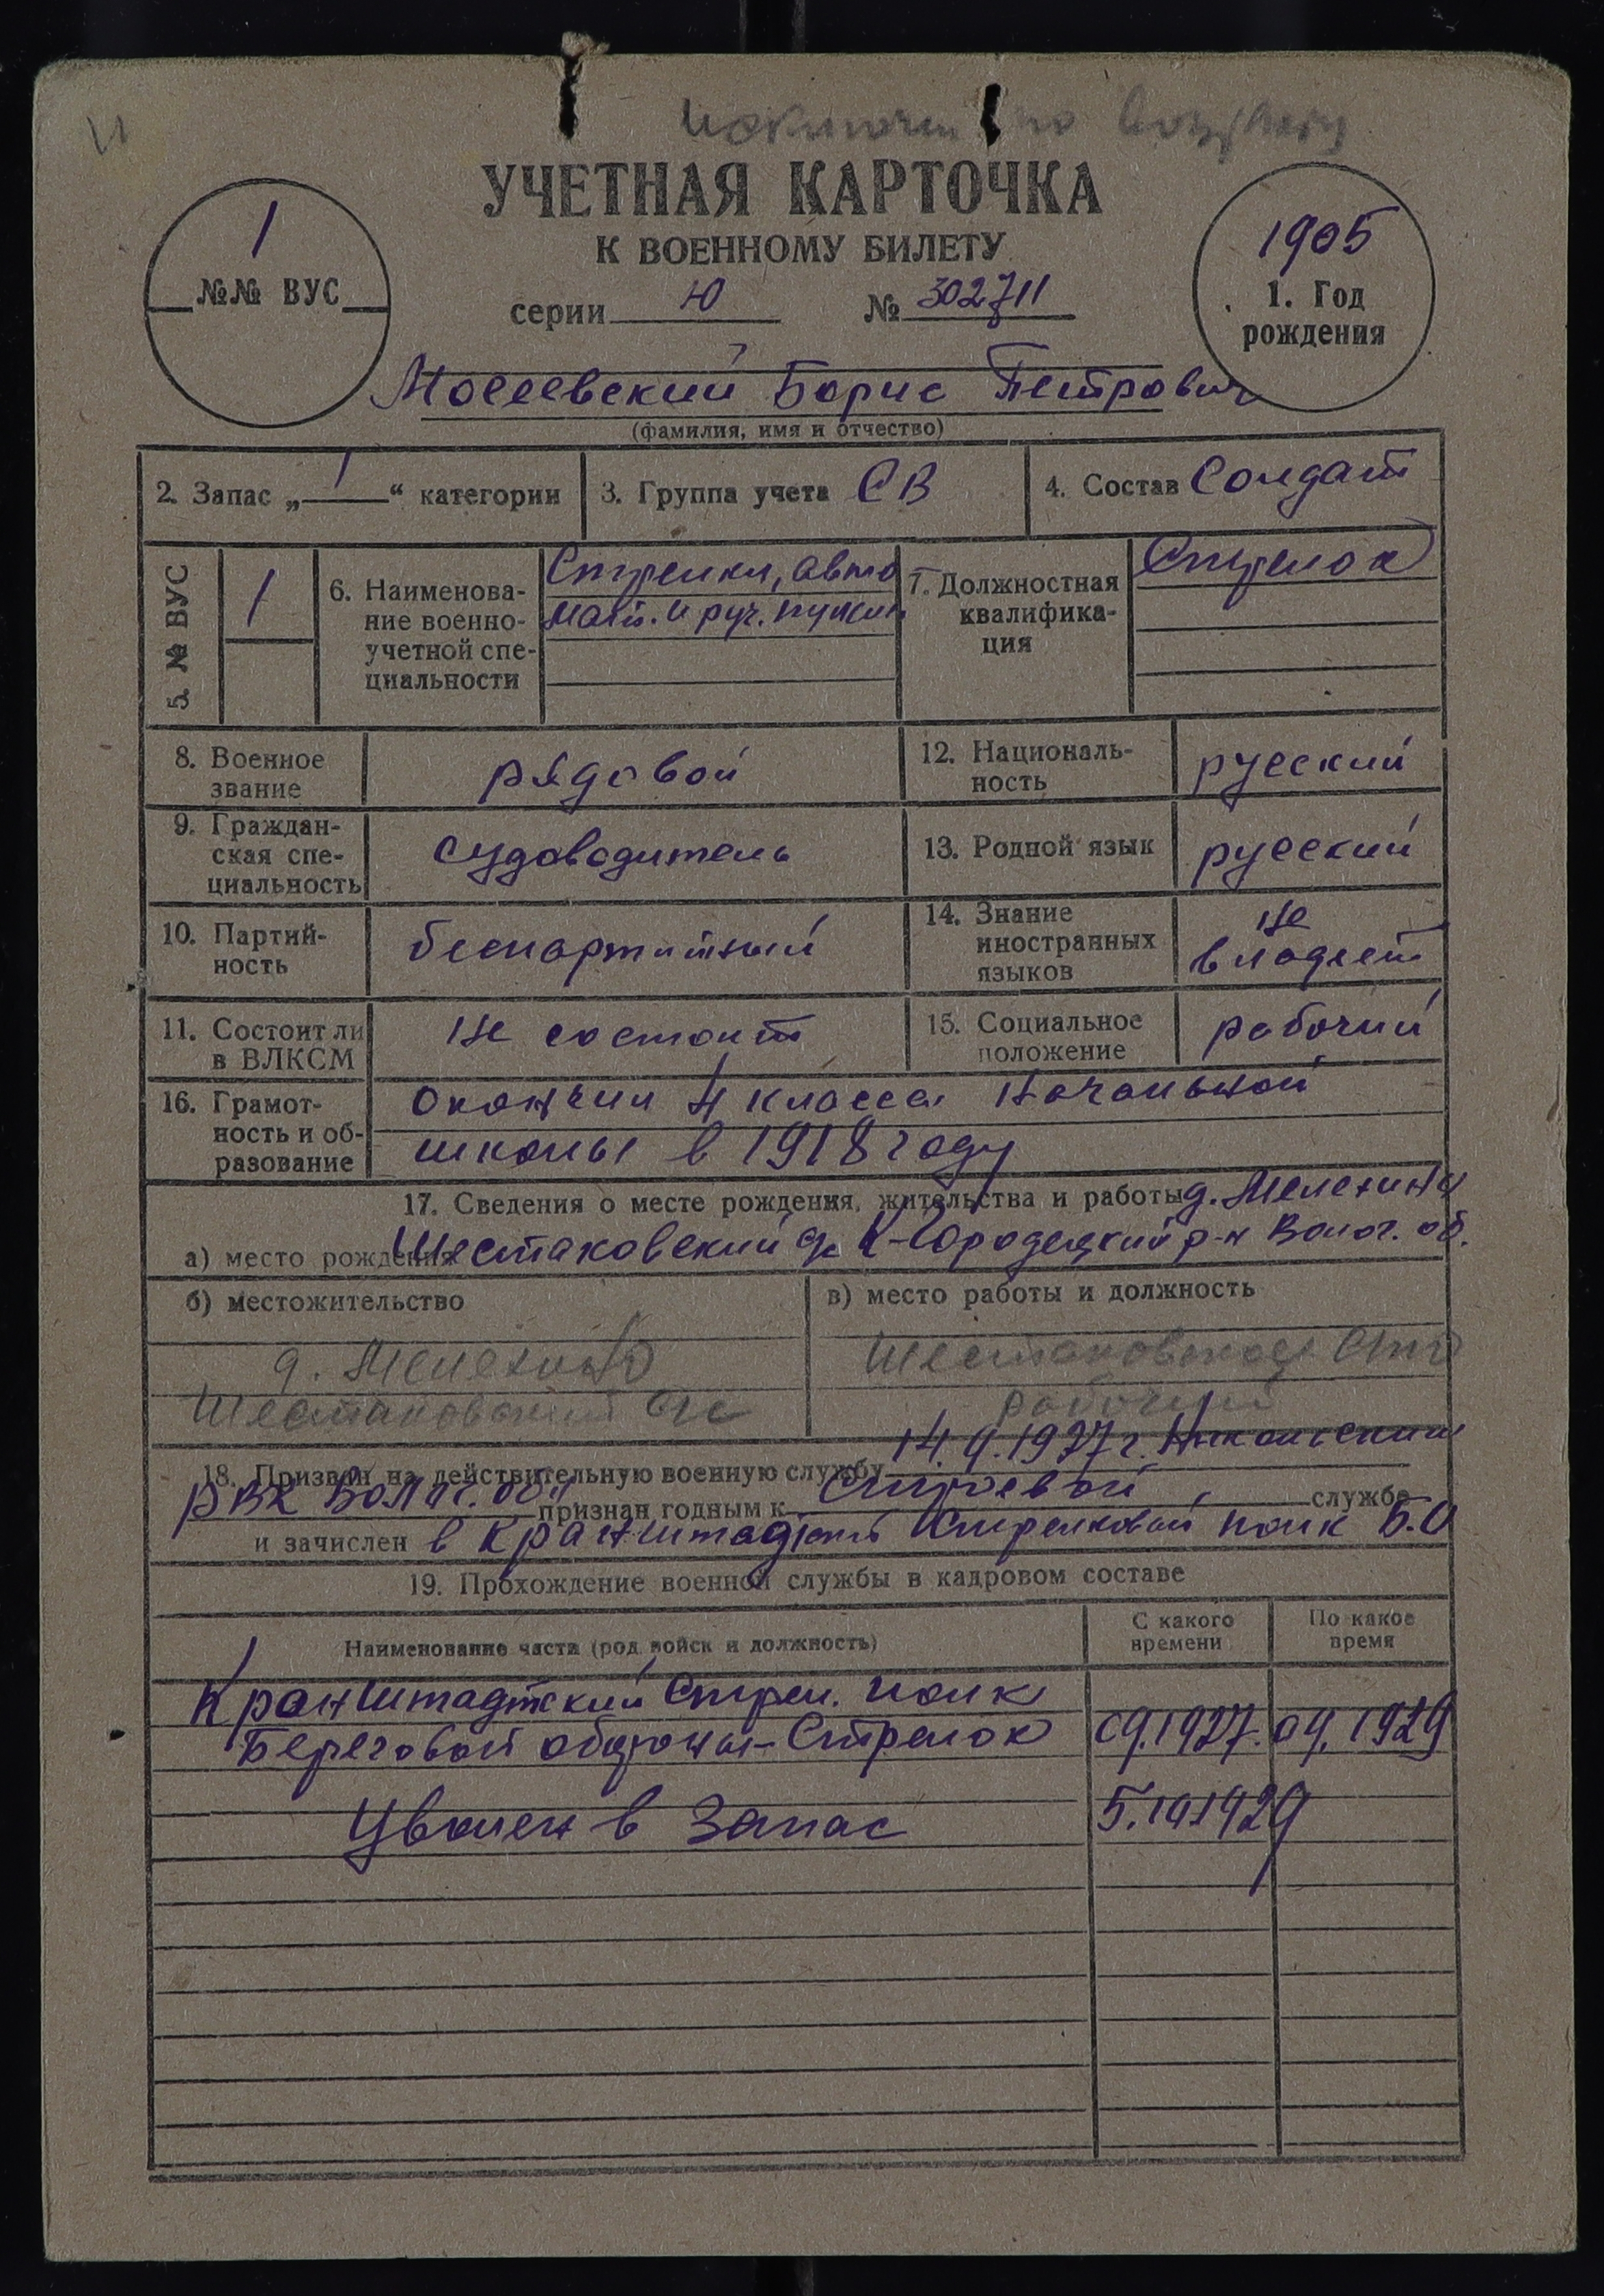 Исключен по возрасту
УЧЕТНАЯ КАРТОЧКА
К ВОЕННОМУ БИЛЕТУ
серии Ю № 302711
1
№№ ВУС
1905
1. Год
рождения
Мосеевский Борис Петрович
(фамилия, имя и отчество)
2. Запас „1“ категории
3. Группа учета СВ
4. Состав Солдат
5. № ВУС
1
6. Наименова-
ние военно-
учетной спе-
циальности
Стрелки, авто
мат. и руч. пулем.
7. Должностная
квалифика-
ция
Стрелок
8. Военное
звание
рядовой
12. Националь-
ность
русский
9. Граждан-
ская спе-
циальность
судоводитель
13. Родной язык
русский
10. Партий-
ность
беспартийный
14. Знание
иностранных
языков
не
владеет
11. Состоит ли
в ВЛКСМ
не состоит
15. Социальное
положение
рабочий
16. Грамот-
ность и об-
разование
окончил 4 класса начальной
школы в 1918 году
17. Сведения о месте рождения, жительства и работы д. Мелехино
а) место рождения Шестаковский с/с К-Городецкий р-н Волог. об.
б) местожительство
д. Мелехино
Шестаковский с/с
в) место работы и должность
рабочий
18. Призван на действительную военную службу 14.9.1927 г. Никольским
РВК Волог. обл признан годным к строевой службе
и зачислен в Кранштадский стрелковый полк Б.О
19. Прохождение военной службы в кадровом составе
Наименование части (род войск и должность)
С какого
времени
По какое
время
Кранштадтский Стрел. полк
Береговой обороны - Стрелок 09.1927. 09.1929
Уволен в запас 5.10.1929